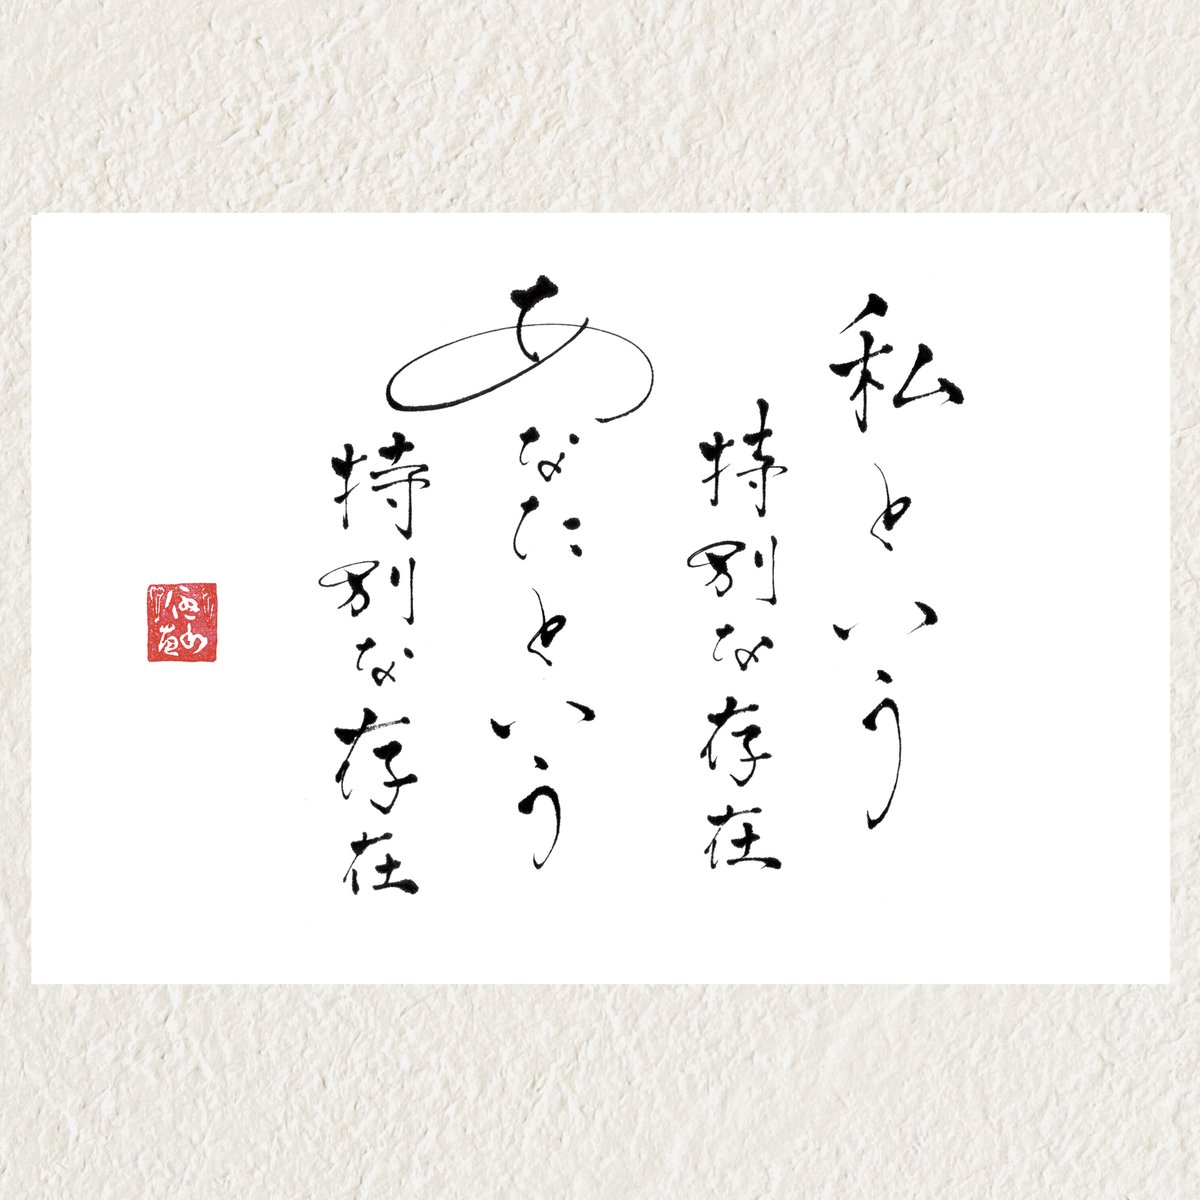 私という
特別な存在
あなたという
特別な存在